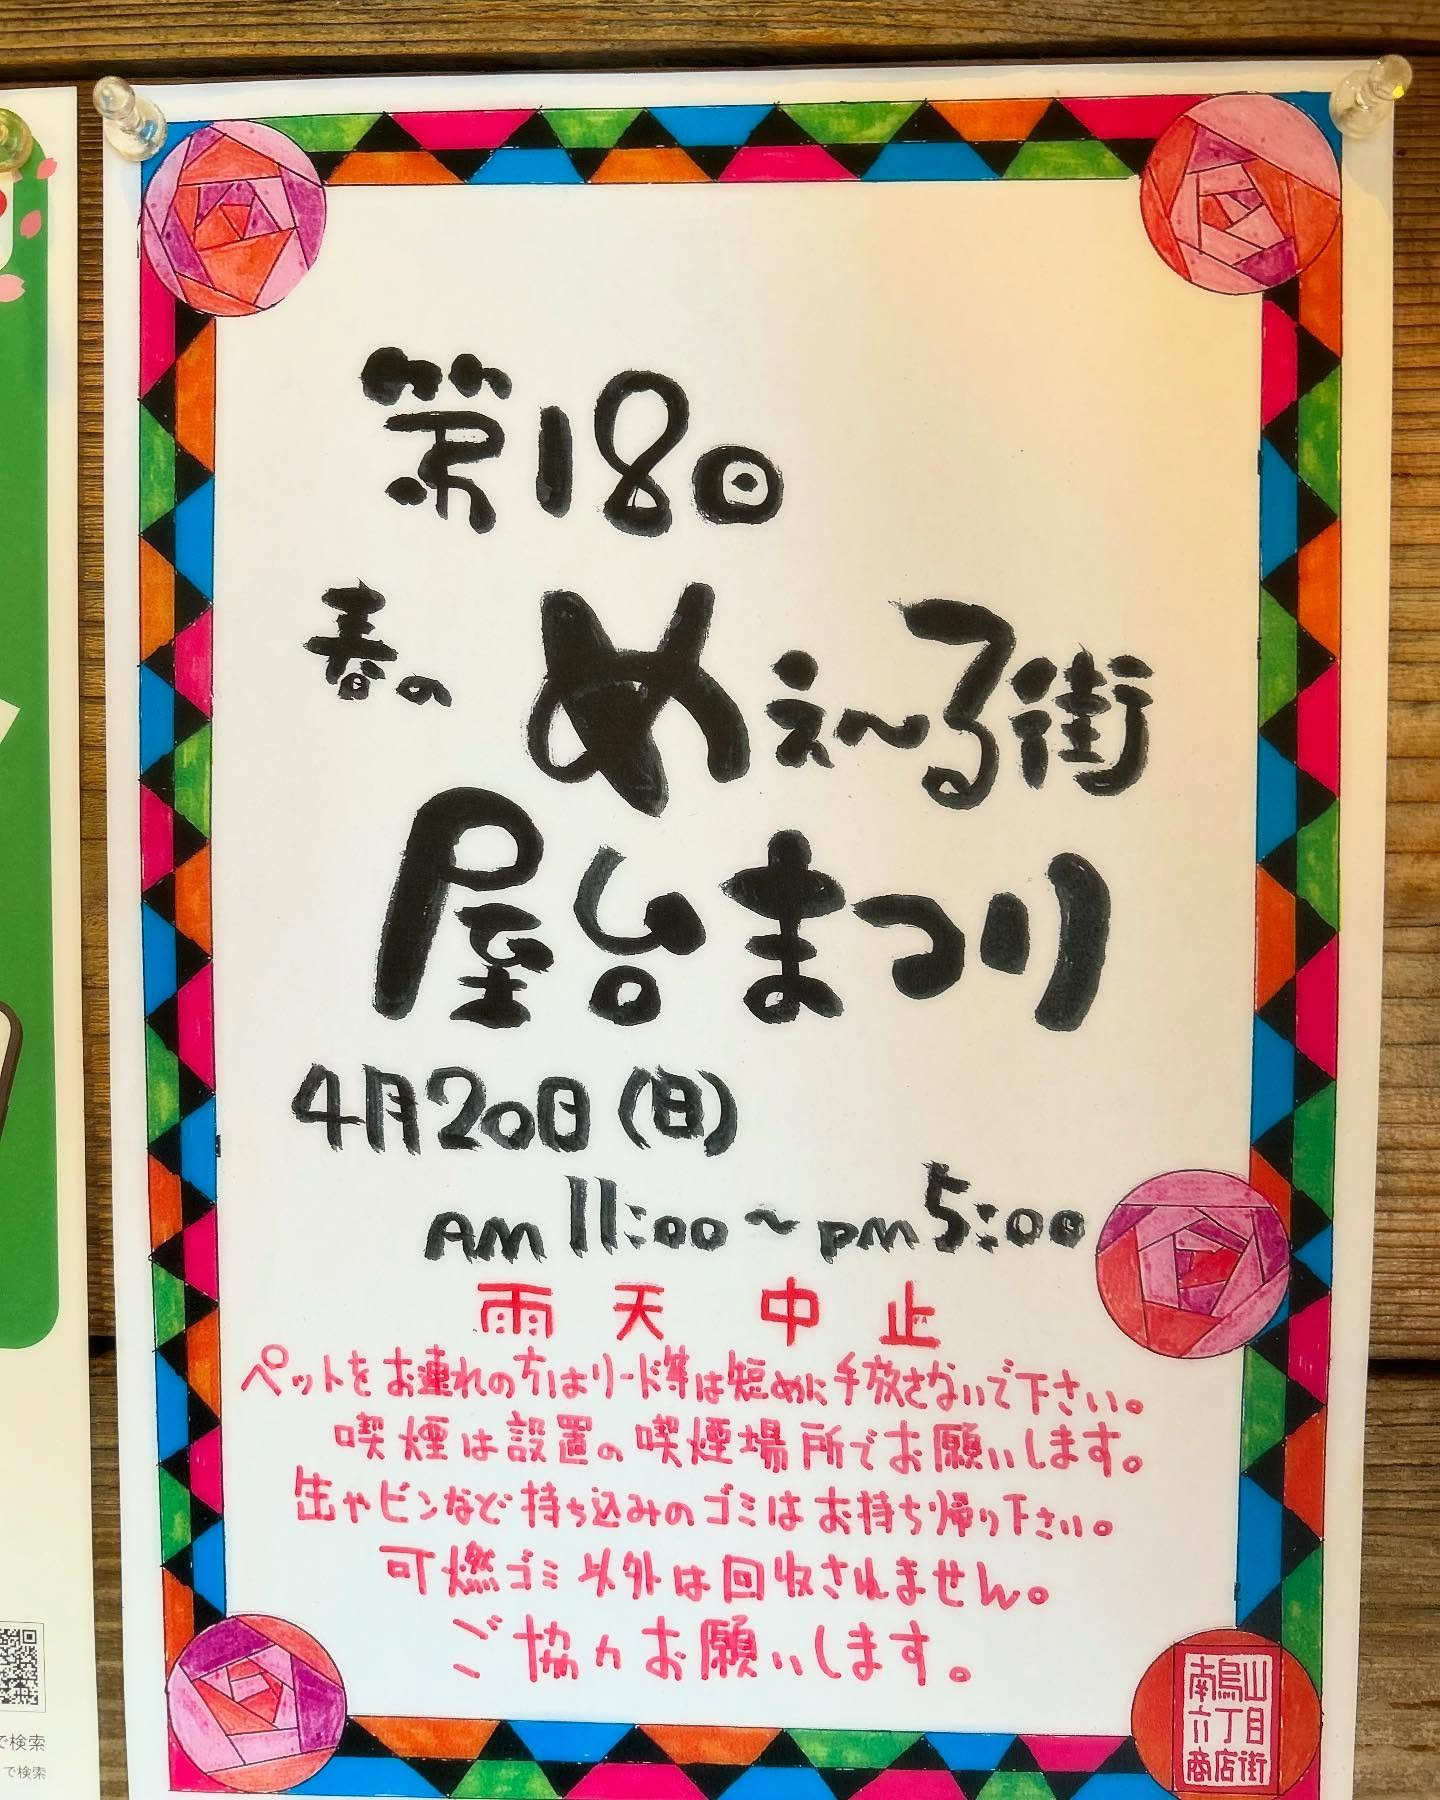 第18回
春の
めぇ〜る街
屋台まつり
4月20日(日)
AM 11:00〜PM 5:00
雨天中止
ペットをお連れの方はリード等は短めに手放さないで下さい。
喫煙は設置の喫煙場所でお願いします。
缶やビンなど持ち込みのゴミはお持ち帰り下さい。
可燃ゴミ以外は回収されません。
ご協力お願いします。
南烏山
六丁目
商店街
で検索
で検索